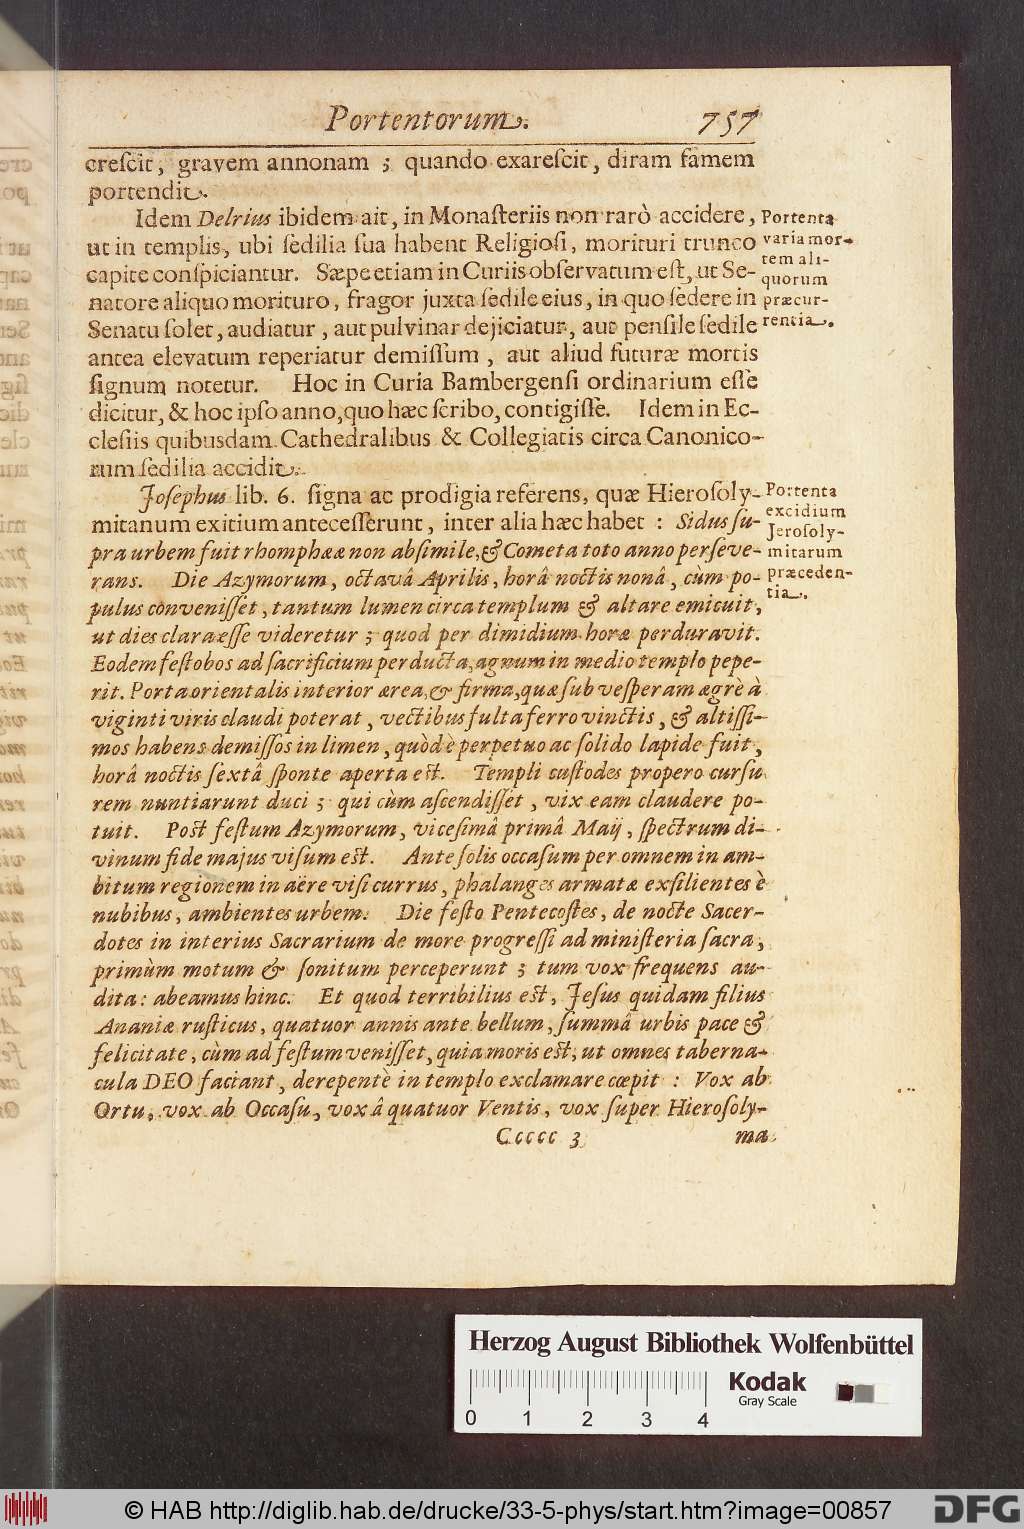 Portentorum. 757
creſcit, gravem annonam; quando exareſcit, diram famem
portendit.
Idem Delrius ibidem ait, in Monaſteriis non rarò accidere,
ut in templis, ubi ſedilia ſua habent Religioſi, morituri trunco
capite conſpiciantur. Sæpe etiam in Curiis obſervatum eſt, ut Se-
natore aliquo morituro, fragor juxta ſedile eius, in quo ſedere in
Senatu ſolet, audiatur, aut pulvinar dejiciatur, aut penſile ſedile
antea elevatum reperiatur demiſſum, aut aliud futuræ mortis
ſignum notetur. Hoc in Curia Bambergenſi ordinarium eſſe
dicitur, & hoc ipſo anno, quo hæc ſcribo, contigiſſe. Idem in Ec-
cleſiis quibusdam Cathedralibus & Collegiatis circa Canonico-
rum ſedilia accidit.
Portenta
varia mor-
tem ali-
quorum
præcur-
rentia.
Joſephus lib. 6. ſigna ac prodigia referens, quæ Hieroſoly-
mitanum exitium anteceſſerunt, inter alia hæc habet: Sidus ſu-
pra urbem fuit rhomphææ non abſimile, & Cometa toto anno perſeve-
rans. Die Azymorum, octavâ Aprilis, horâ noctis nonâ, cùm po-
pulus conveniſſet, tantum lumen circa templum & altare emicuit,
ut dies clara eſſe videretur; quod per dimidium horæ perduravit.
Eodem feſto bos ad ſacrificium perducta, agnum in medio templo pepe-
rit. Porta orientalis interior ærea, & firma, quæ ſub veſperam ægrè à
viginti viris claudi poterat, vectibus fulta ferro vinctis, & altiſſi-
mos habens demiſſos in limen, quòd è perpetuo ac ſolido lapide fuit,
horâ noctis ſextâ ſponte aperta eſt. Templi cuſtodes propero curſu
rem nuntiarunt duci; qui cùm aſcendiſſet, vix eam claudere po-
tuit. Poſt feſtum Azymorum, viceſimâ primâ Maij, ſpectrum di-
vinum fide majus viſum eſt. Ante ſolis occaſum per omnem in am-
bitum regionem in aëre viſi currus, phalanges armatæ exſilientes è
nubibus, ambientes urbem. Die feſto Pentecoſtes, de nocte Sacer-
dotes in interius Sacrarium de more progreſſi ad miniſteria ſacra,
primùm motum & ſonitum perceperunt; tum vox frequens au-
dita: abeamus hinc. Et quod terribilius eſt, Jeſus quidam filius
Ananiæ ruſticus, quatuor annis ante bellum, ſummâ urbis pace &
felicitate, cùm ad feſtum veniſſet, quia moris eſt, ut omnes taberna-
cula DEO faciant, derepentè in templo exclamare cœpit: Vox ab
Ortu, vox ab Occaſu, vox â quatuor Ventis, vox ſuper Hieroſoly-
Portenta
excidium
Jeroſoly-
mitarum
præceden-
tia.
Ccccc 3 ma
Herzog August Bibliothek Wolfenbüttel
Kodak
Gray Scale
0 1 2 3 4
© HAB http://diglib.hab.de/drucke/33-5-phys/start.htm?image=00857
DFG